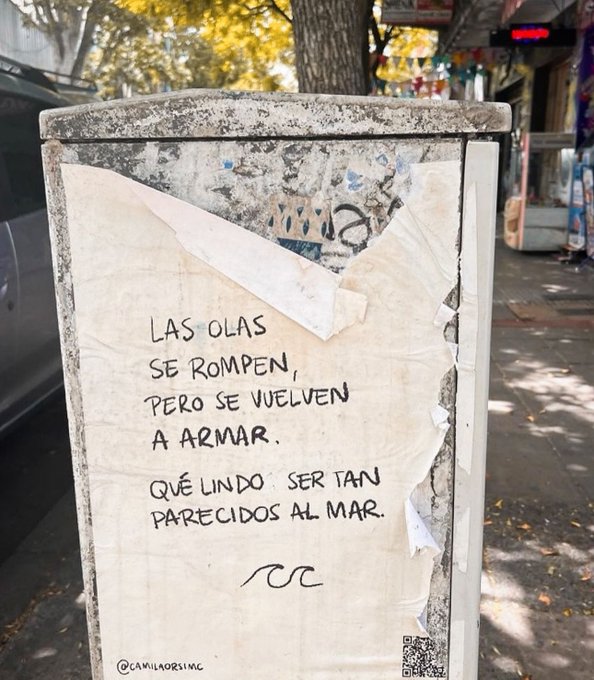 LAS OLAS
SE ROMPEN,
PERO SE VUELVEN
A ARMAR.
QUÉ LINDO SER TAN
PARECIDOS AL MAR.
@CAMILAORSIMC